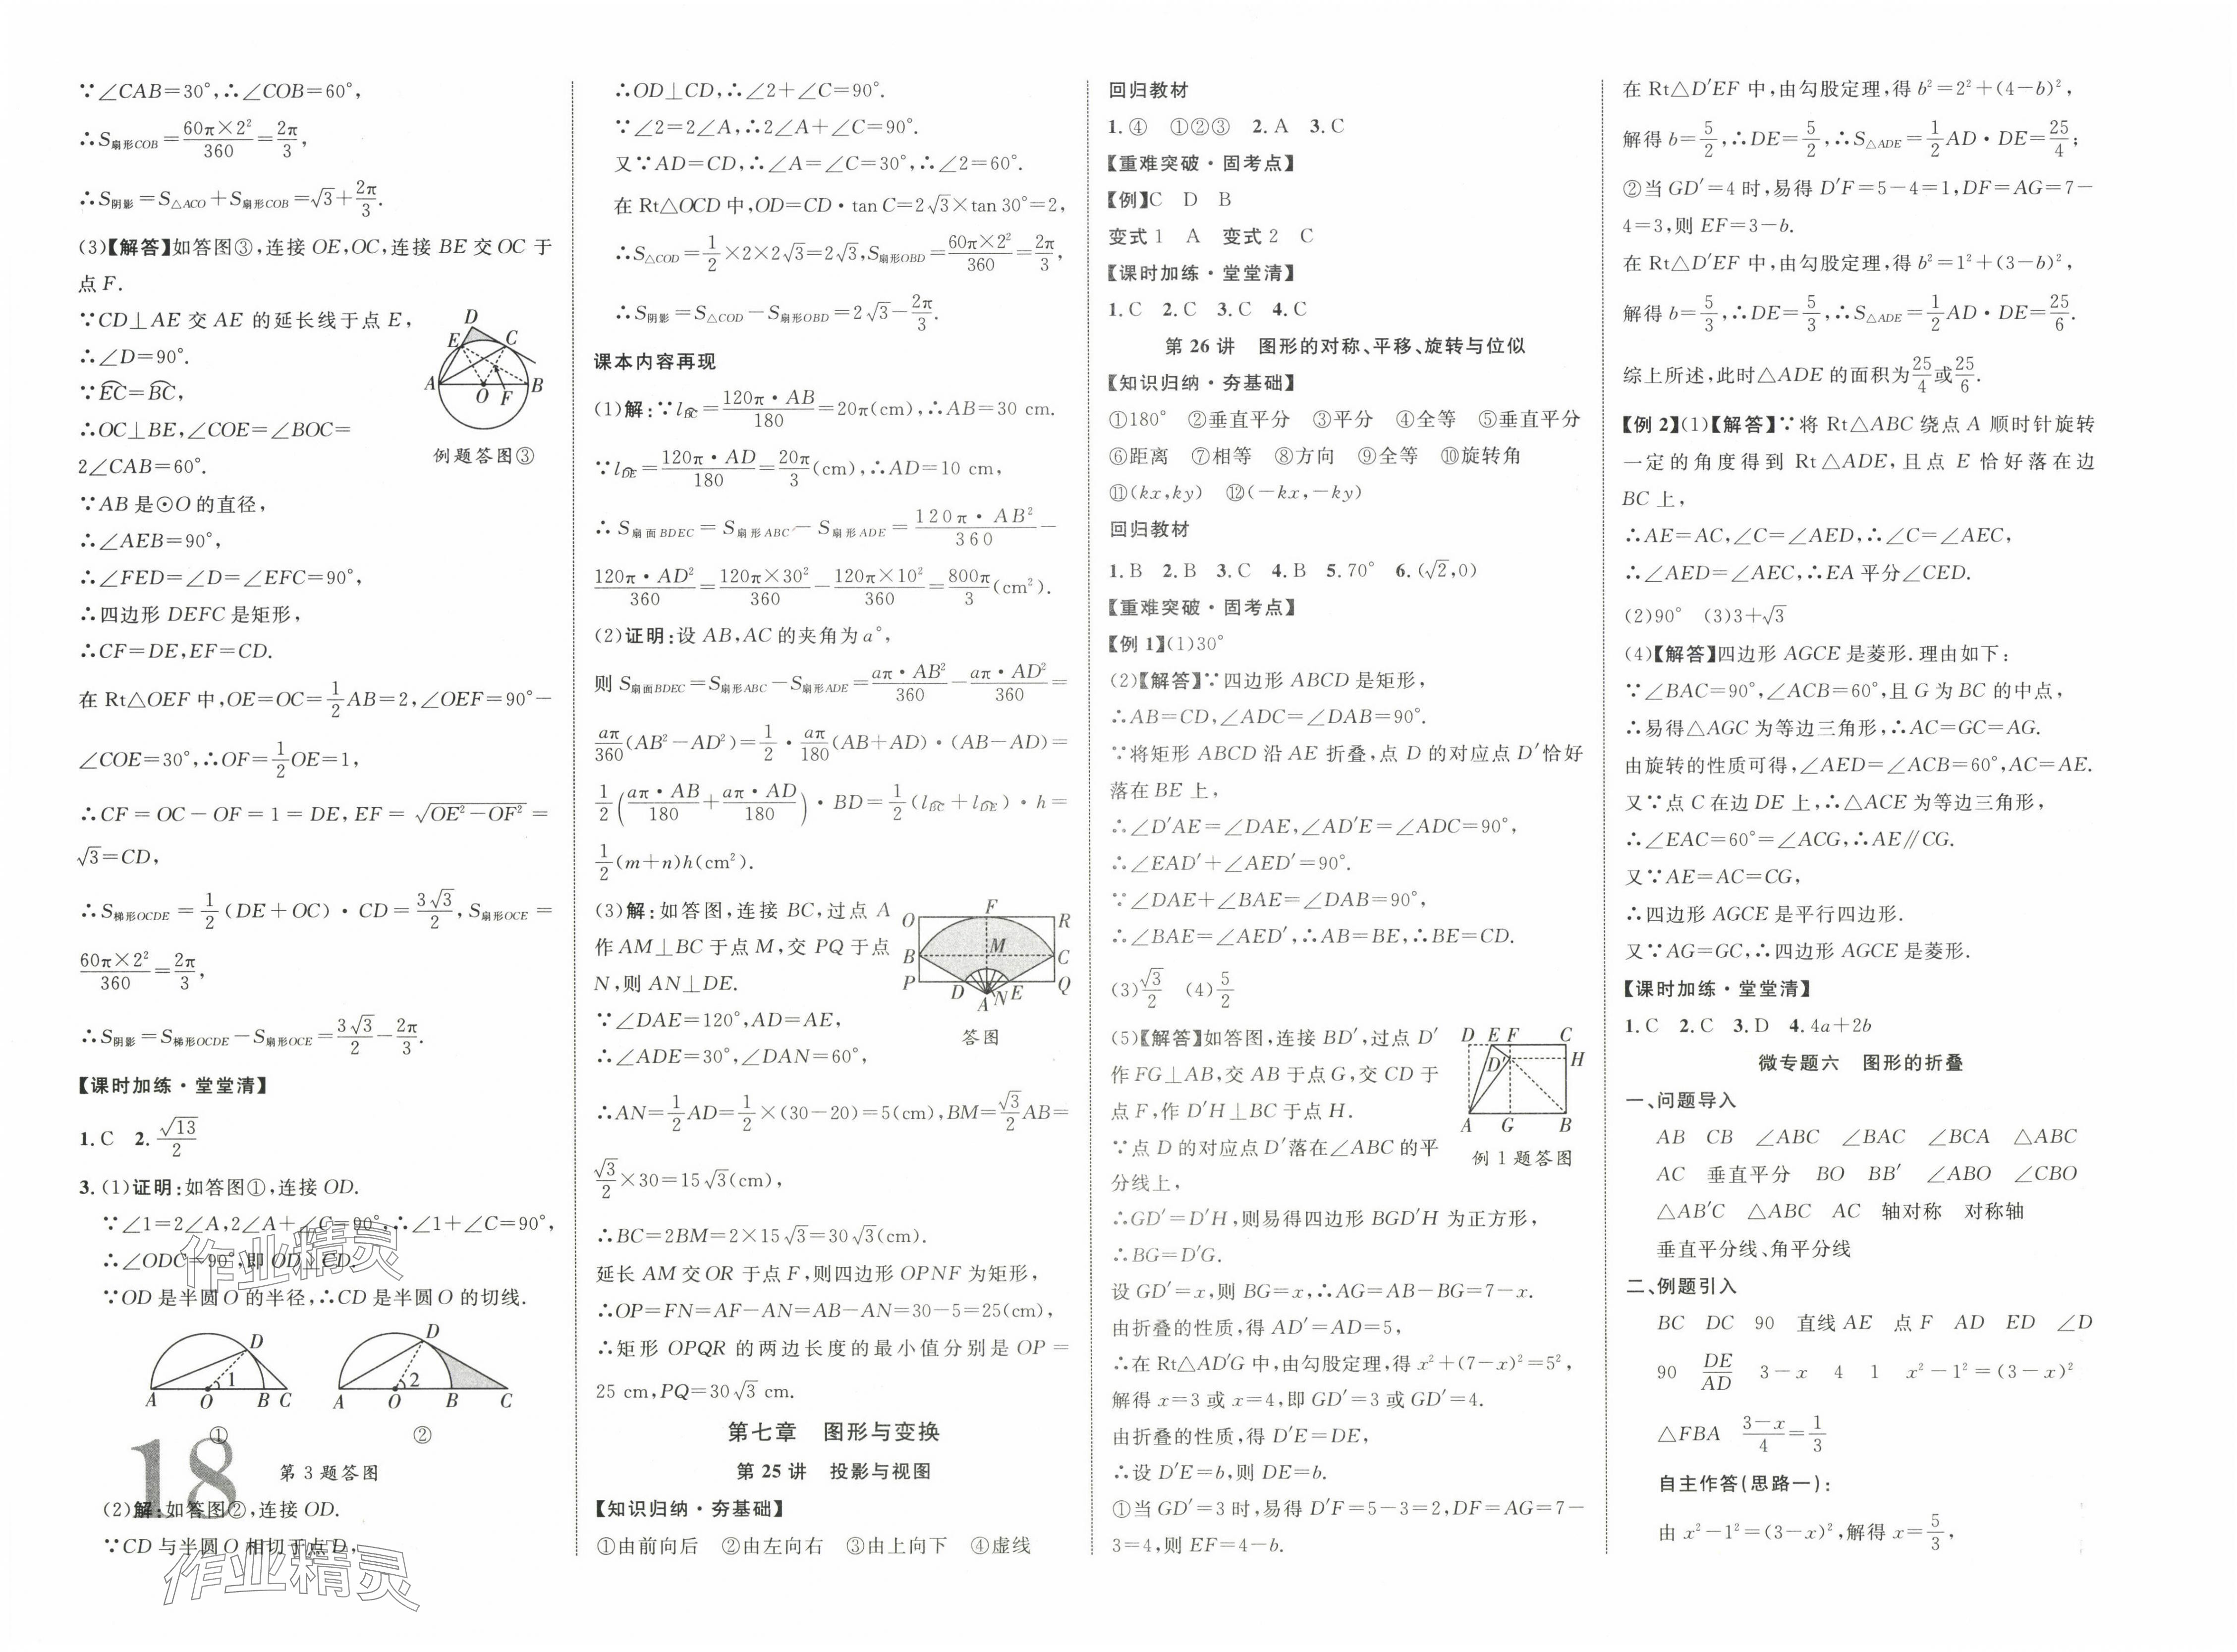 ∵∠CAB=30°,∴∠COB=60°,
∴S扇形COB=60π×2²/360=2π/3,
∴S阴影=S△ACO+S扇形COB=√3+2π/3.
(3)【解答】如答图③,连接 OE,OC,连接 BE 交 OC 于
点 F.
∵CD⊥AE 交 AE 的延长线于点 E,
∴∠D=90°.
∵EC⌢=BC⌢,
∴OC⊥BE,∠COE=∠BOC=
2∠CAB=60°.
D
E C
A O F B
例题答图③
∵AB 是⊙O 的直径,
∴∠AEB=90°,
∴∠FED=∠D=∠EFC=90°,
∴四边形 DEFC 是矩形,
∴CF=DE,EF=CD.
在 Rt△OEF 中,OE=OC=1/2AB=2,∠OEF=90°-
∠COE=30°,∴OF=1/2OE=1,
∴CF=OC-OF=1=DE,EF=√(OE²-OF²)=
√3=CD,
∴S梯形OCDE=1/2(DE+OC)·CD=3√3/2,S扇形OCE=
60π×2²/360=2π/3,
∴S阴影=S梯形OCDE-S扇形OCE=3√3/2-2π/3.
【课时加练·堂堂清】
1.C 2.√13/2
3.(1)证明:如答图①,连接 OD.
∵∠1=2∠A,2∠A+∠C=90°,∴∠1+∠C=90°,
∴∠ODC=90°,即 OD⊥CD.
∵OD 是半圆 O 的半径,∴CD 是半圆 O 的切线.
D
A O 1 B C
①
D
A O 2 B C
②
第 3 题答图
18
(2)解:如答图②,连接 OD.
∵CD 与半圆 O 相切于点 D,
作业精灵
作业精灵
∴OD⊥CD,∴∠2+∠C=90°.
∵∠2=2∠A,∴2∠A+∠C=90°.
又∵AD=CD,∴∠A=∠C=30°,∴∠2=60°.
在 Rt△OCD 中,OD=CD·tan C=2√3×tan 30°=2,
∴S△COD=1/2×2×2√3=2√3,S扇形OBD=60π×2²/360=2π/3,
∴S阴影=S△COD-S扇形OBD=2√3-2π/3.
课本内容再现
(1)解:∵lBC⌢=120π·AB/180=20π(cm),∴AB=30 cm.
∵lDE⌢=120π·AD/180=20π/3(cm),∴AD=10 cm,
∴S扇面BDEC=S扇形ABC-S扇形ADE=120π·AB²/360-
120π·AD²/360=120π×30²/360-120π×10²/360=800π/3(cm²).
(2)证明:设 AB,AC 的夹角为 a°,
则 S扇面BDEC=S扇形ABC-S扇形ADE=aπ·AB²/360-aπ·AD²/360=
aπ/360(AB²-AD²)=1/2·aπ/180(AB+AD)·(AB-AD)=
1/2(aπ·AB/180+aπ·AD/180)·BD=1/2(lBC⌢+lDE⌢)·h=
1/2(m+n)h(cm²).
(3)解:如答图,连接 BC,过点 A
作 AM⊥BC 于点 M,交 PQ 于点
N,则 AN⊥DE.
∵∠DAE=120°,AD=AE,
∴∠ADE=30°,∠DAN=60°,
O F R
B M C
P D A N E Q
答图
∴AN=1/2AD=1/2×(30-20)=5(cm),BM=√3/2AB=
√3/2×30=15√3(cm),
∴BC=2BM=2×15√3=30√3(cm).
延长 AM 交 OR 于点 F,则四边形 OPNF 为矩形,
∴OP=FN=AF-AN=AB-AN=30-5=25(cm),
∴矩形 OPQR 的两边长度的最小值分别是 OP=
25 cm,PQ=30√3 cm.
第七章 图形与变换
第 25 讲 投影与视图
【知识归纳·夯基础】
①由前向后 ②由左向右 ③由上向下 ④虚线
回归教材
1.④ ①②③ 2.A 3.C
【重难突破·固考点】
【例】C D B
变式 1 A 变式 2 C
【课时加练·堂堂清】
1.C 2.C 3.C 4.C
第 26 讲 图形的对称、平移、旋转与位似
【知识归纳·夯基础】
①180° ②垂直平分 ③平分 ④全等 ⑤垂直平分
⑥距离 ⑦相等 ⑧方向 ⑨全等 ⑩旋转角
⑪(kx,ky) ⑫(-kx,-ky)
回归教材
1.B 2.B 3.C 4.B 5.70° 6.(√2,0)
【重难突破·固考点】
【例 1】(1)30°
(2)【解答】∵四边形 ABCD 是矩形,
∴AB=CD,∠ADC=∠DAB=90°.
∵将矩形 ABCD 沿 AE 折叠,点 D 的对应点 D′恰好
落在 BE 上,
∴∠D′AE=∠DAE,∠AD′E=∠ADC=90°,
∴∠EAD′+∠AED′=90°.
∵∠DAE+∠BAE=∠DAB=90°,
∴∠BAE=∠AED′,∴AB=BE,∴BE=CD.
(3)√3/2 (4)5/2
(5)【解答】如答图,连接 BD′,过点 D′
作 FG⊥AB,交 AB 于点 G,交 CD 于
点 F,作 D′H⊥BC 于点 H.
∵点 D 的对应点 D′落在∠ABC 的平
分线上,
D E F C
D′ H
A G B
例 1 题答图
∴GD′=D′H,则易得四边形 BGD′H 为正方形,
∴BG=D′G.
设 GD′=x,则 BG=x,∴AG=AB-BG=7-x.
由折叠的性质,得 AD′=AD=5,
∴在 Rt△AD′G 中,由勾股定理,得 x²+(7-x)²=5²,
解得 x=3 或 x=4,即 GD′=3 或 GD′=4.
由折叠的性质,得 D′E=DE,
∴设 D′E=b,则 DE=b.
①当 GD′=3 时,易得 D′F=5-3=2,DF=AG=7-
3=4,则 EF=4-b.
在 Rt△D′EF 中,由勾股定理,得 b²=2²+(4-b)²,
解得 b=5/2,∴DE=5/2,∴S△ADE=1/2AD·DE=25/4;
②当 GD′=4 时,易得 D′F=5-4=1,DF=AG=7-
4=3,则 EF=3-b.
在 Rt△D′EF 中,由勾股定理,得 b²=1²+(3-b)²,
解得 b=5/3,∴DE=5/3,∴S△ADE=1/2AD·DE=25/6.
综上所述,此时△ADE 的面积为25/4或25/6.
【例 2】(1)【解答】∵将 Rt△ABC 绕点 A 顺时针旋转
一定的角度得到 Rt△ADE,且点 E 恰好落在边
BC 上,
∴AE=AC,∠C=∠AED,∴∠C=∠AEC,
∴∠AED=∠AEC,∴EA 平分∠CED.
(2)90° (3)3+√3
(4)【解答】四边形 AGCE 是菱形.理由如下:
∵∠BAC=90°,∠ACB=60°,且 G 为 BC 的中点,
∴易得△AGC 为等边三角形,∴AC=GC=AG.
由旋转的性质可得,∠AED=∠ACB=60°,AC=AE.
又∵点 C 在边 DE 上,∴△ACE 为等边三角形,
∴∠EAC=60°=∠ACG,∴AE∥CG.
又∵AE=AC=CG,
∴四边形 AGCE 是平行四边形.
又∵AG=GC,∴四边形 AGCE 是菱形.
【课时加练·堂堂清】
1.C 2.C 3.D 4.4a+2b
微专题六 图形的折叠
一、问题导入
AB CB ∠ABC ∠BAC ∠BCA △ABC
AC 垂直平分 BO BB′ ∠ABO ∠CBO
△AB′C △ABC AC 轴对称 对称轴
垂直平分线、角平分线
二、例题引入
BC DC 90 直线 AE 点 F AD ED ∠D
90 DE/AD 3-x 4 1 x²-1²=(3-x)²
△FBA (3-x)/4=1/3
自主作答(思路一):
由 x²-1²=(3-x)²,解得 x=5/3,